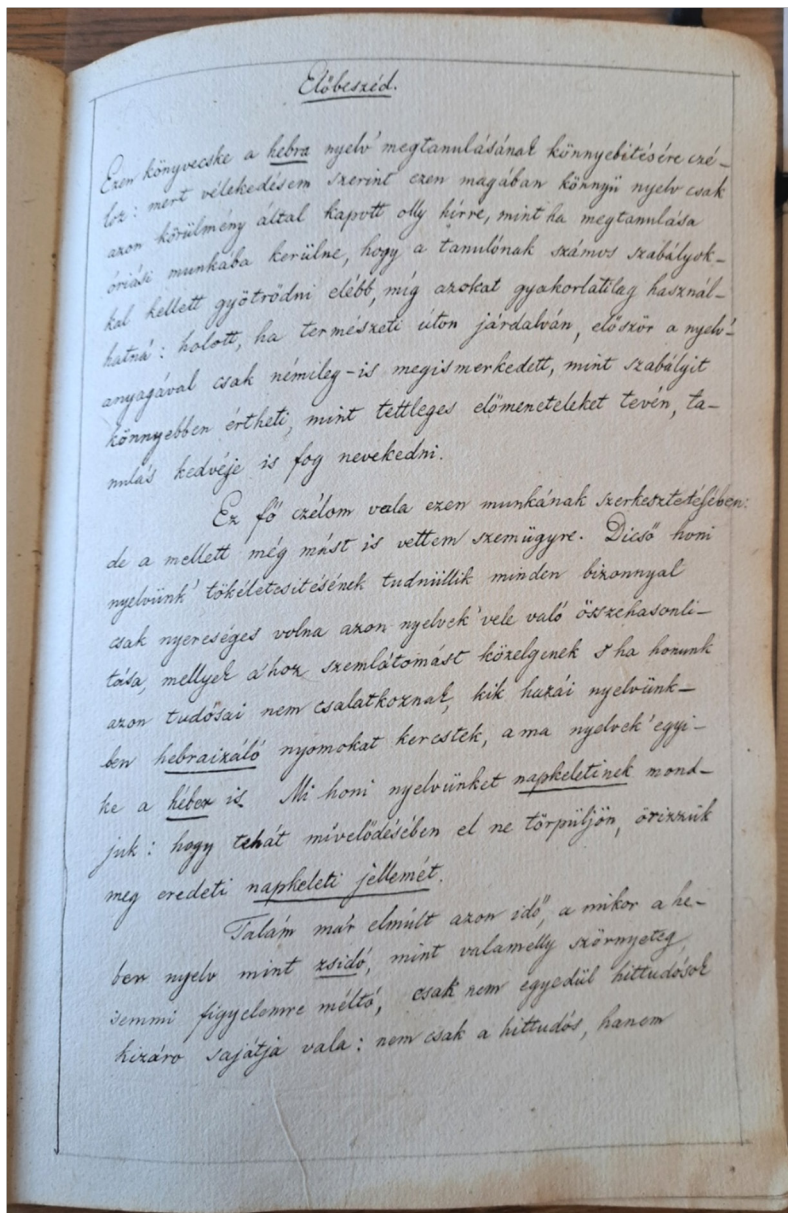 Előbeszéd.
Ezen könyvecske a hebra nyelv' megtanulásának könnyebitésére czé-
loz: mert vélekedésem szerint ezen magában könnyü nyelv csak
azon körülmény által kapott olly hirre, mint ha megtanulása
óriási munkába kerülne, hogy a tanulónak számos szabályok-
kal kellett gyötrődni elébb, míg azokat gyakorlatilag használ-
hatná: holott, ha természeti úton járdalván, először a nyelv'
anyagával csak némileg-is megismerkedett, mint szabályit
könnyebben értheti, mint tettleges előmeneteleket tevén, ta-
nulás kedvéje is fog nevekedni.
Ez fő czélom vala ezen munkának szerkesztetésében:
de a mellett még mást is vettem szemügyre. Dicső honi
nyelvünk' tökéletesitésének tudniillik minden bizonnyal
csak nyereséges volna azon nyelvek' vele való összehasonli-
tása, mellyek a'hoz szemlátomást közelgenek s ha honunk
azon tudósai nem csalatkoznak, kik hazái nyelvünk-
ben hebraizáló nyomokat kerestek, a ma nyelvek' egyi-
ke a héber is. Mi honi nyelvünket napkeletinek mond-
juk: hogy tehát mivelődésében el ne törpüljön, őrizzük
meg eredeti napkeleti jellemét.
Talám már elmúlt azon idő, a mikor a he-
ber nyelv mint zsidó, mint valamelly szörnyeteg,
semmi figyelemre méltó, csak nem egyedül hittudósok
kizáro sajátja vala: nem csak a hittudós, hanem